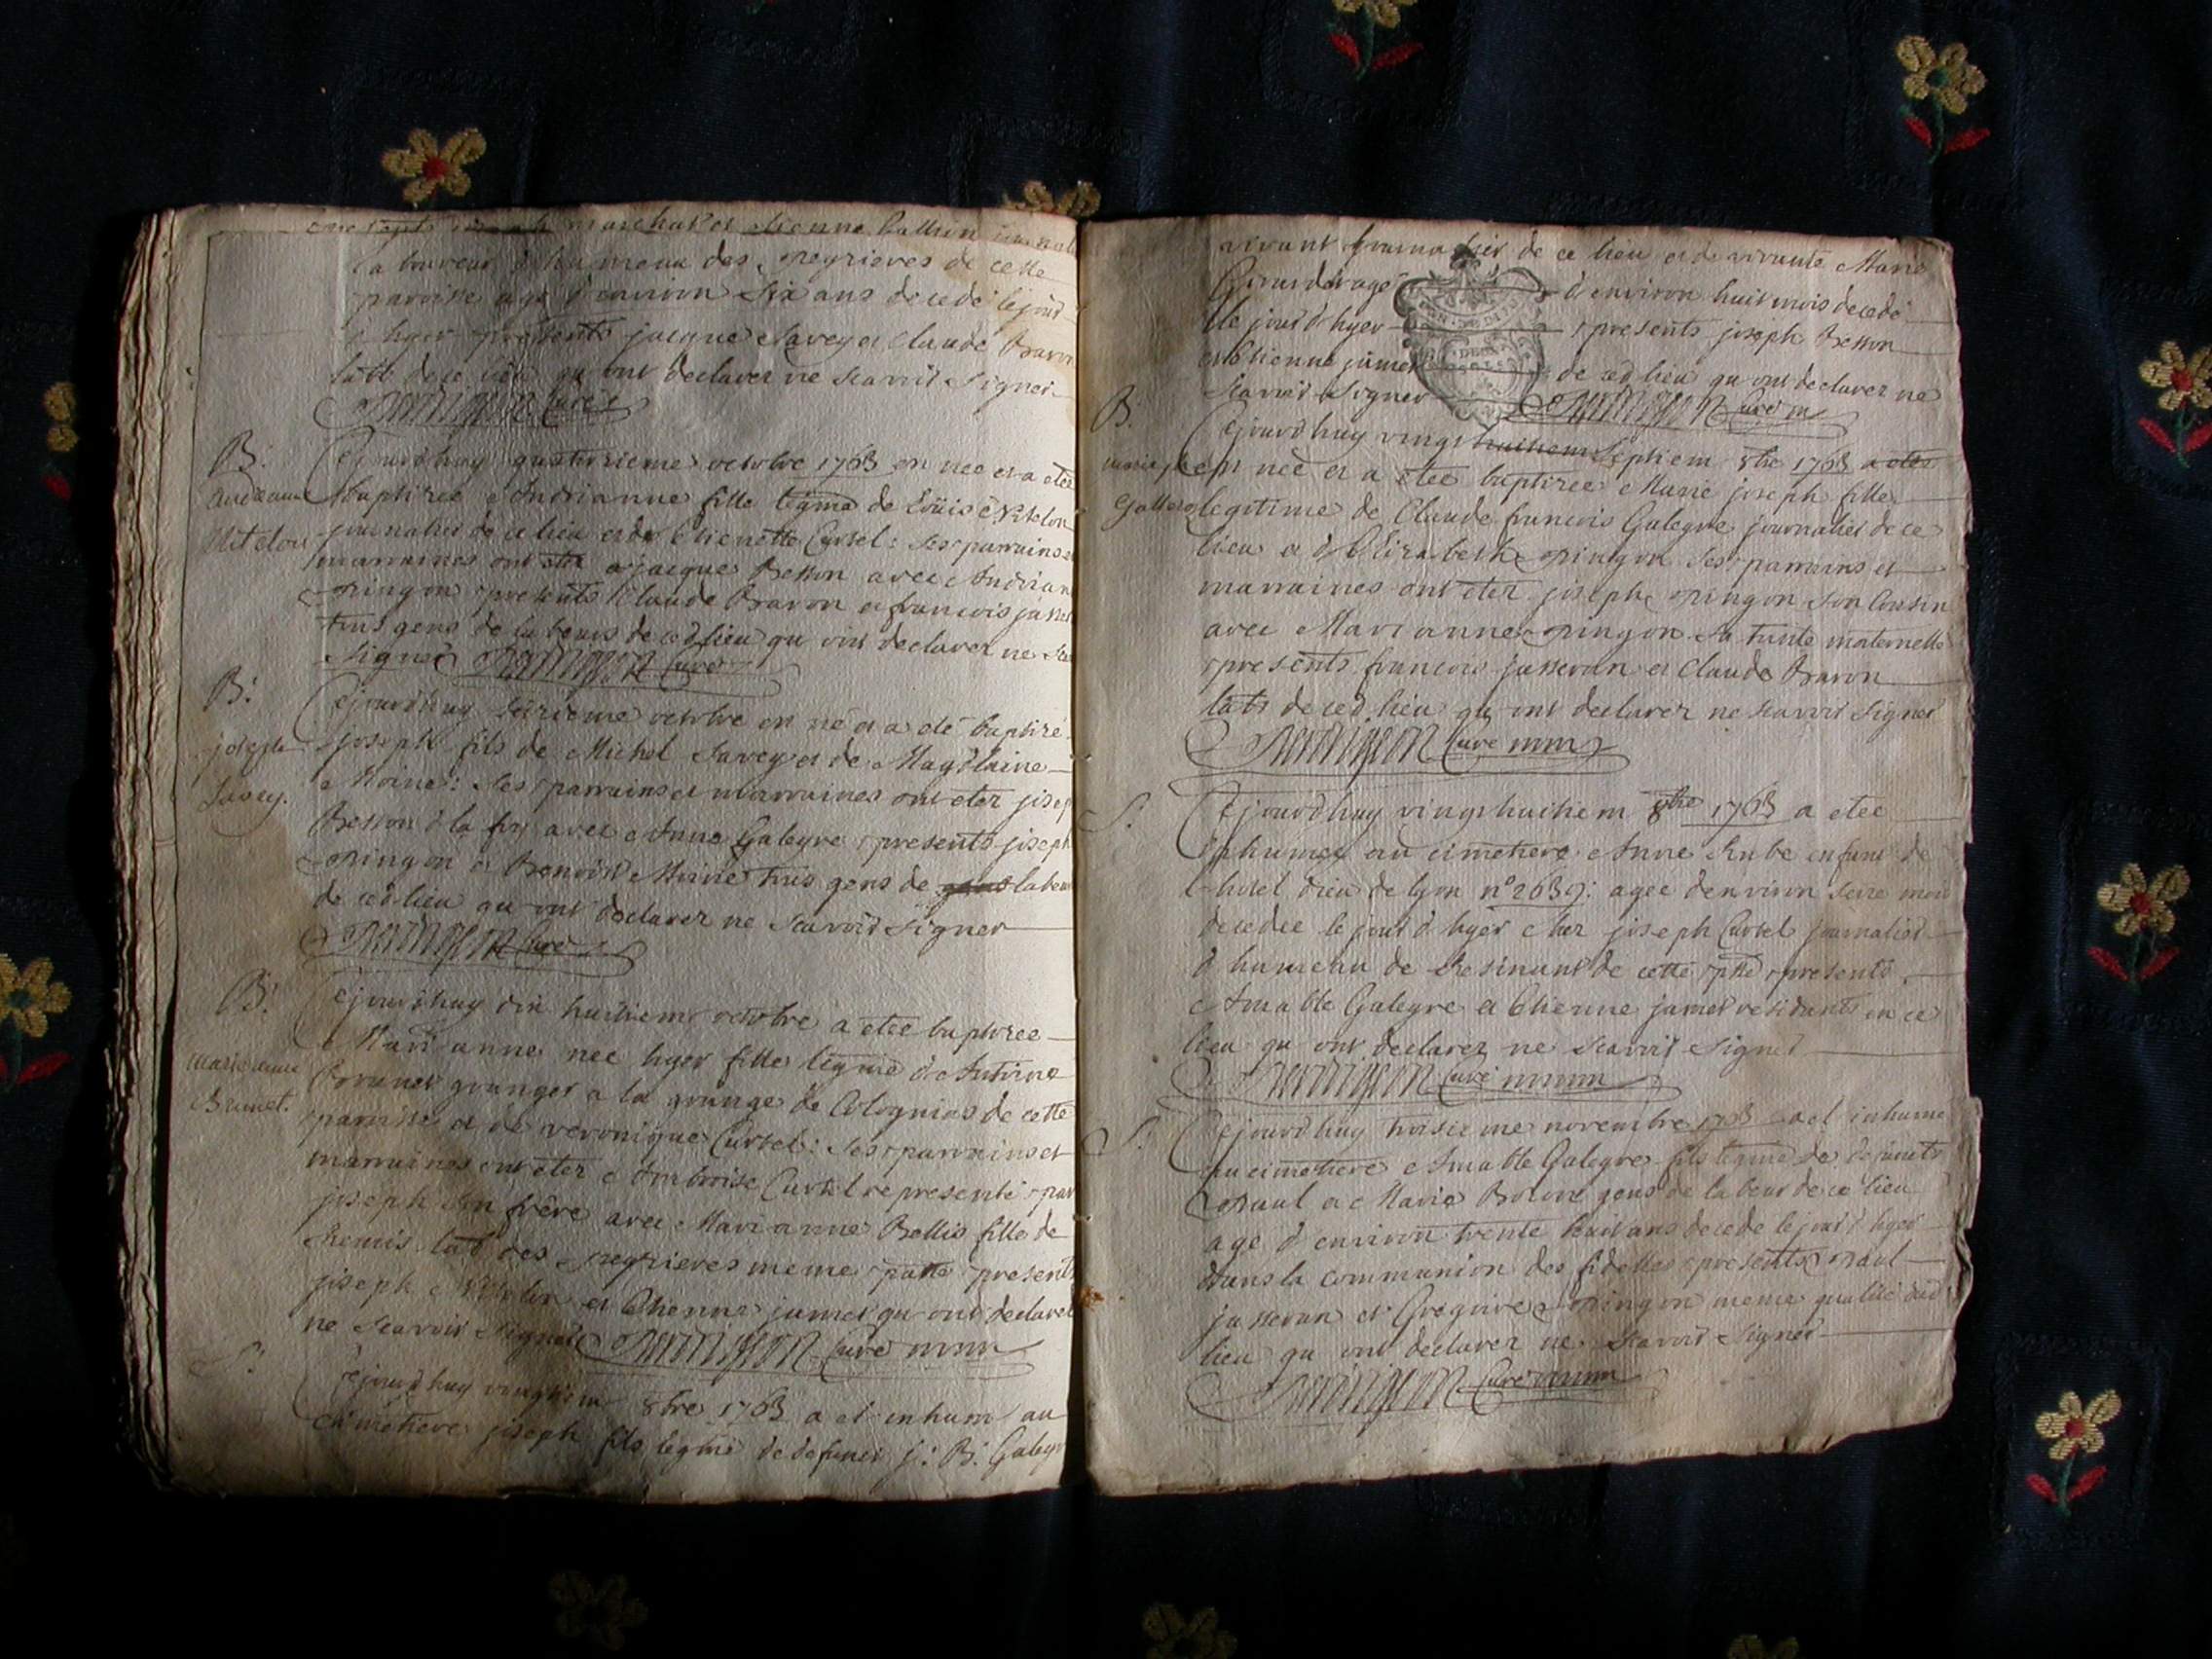 marechal et etienne
laboureur d hameau des peyrieres de cette
paroisse age d environ six ans decede le jour
d hyer presents jacque Savey et Claude Baron
tats de ce lieu qu ont declarer ne scavoir signer
Curé
B:
Mitelon
Cejourdhuy quatorzieme octobre 1763 en nee et a etee
baptizee Andrianne fille legme de Loüis Mitelon
journalier de ce lieu et de Etienette Curtel: ses parrains et
marraines ont jacque Besson avec Andrian
pingon presents Claude Baron et francois
tous gens de labeurs de ced lieu qu ont declarer ne
signer Curé
B:
joseph
Savey.
Cejourdhuy seizieme octobre en né et a eté baptizé
joseph fils de Michel Savey et de Magdlaine
Moine: ses parrains et marraines ont eter josep
Besson d la foy avec Anne Galegre presents joseph
pingon et Benoist Moine tous gens de gens labeur
de ced lieu qu ont declarer ne scavoir signer
Curé
B:
marie anne
Brunet.
Cejourdhuy dix huitiem octobre a etee baptizee
Mari anne nee hyer fille legme d Antoine
Brunet granger a la grange de Colognias de cette
paroisse et de veronique Curtel: ses parrains et
marraines ont eter Ambroise Curtel representé par
joseph son frère avec Mari anne Bellis fille de
des peyrieres meme presents
joseph Mitelon et Etienne jamet qu ont declarer
ne scavoir signer Curé
S:
Cejourdhuy vingtiem 8bre 1763 a et inhum au
cimetiere joseph fils legme de defunct j: B: Galegr
vivant journalier de ce lieu et de vivante Marie
age d environ huit mois decedé
le jour d hyer presents joseph Besson
et Etienne jamet de ced lieu qu ont declarer ne
scavoir signer Curé
B.
Cejourdhuy vingt huitiem Septiem 8bre 1763 a etee
en neé et a etee baptizee Marie joseph fille
legitime de Claude francois Galegre journalier de ce
lieu et d Elizabeth pingon ses parrains et
marraines ont eter joseph pingon son Cousin
avec Mari anne pingon sa tante maternelle
presents francois jasseran et Claude Baron
tats de ced lieu qu ont declarer ne scavoir signer
Curé
S:
Cejourdhuy vingt huitiem 8bre 1763 a etee
inhumer au cimetiere Anne Rube enfant de
l hotel dieu de lyon n° 2639: agee denviron seize mois
decedee le jour d hyer chez joseph Curtel journalier
d hameau de Resinant de cette psse presents
Amable Galegre et Etienne jamet residants en ce
lieu qu ont declarer ne scavoir signer
Curé
S:
Cejourdhuy troisieme novembre 1763 a et inhume
au cimetiere Amable Galegre fils legme de defuncts
paul et Marie gens de labeur de ce lieu
age d environ trente huit ans decede le jour d hyer
dans la communion des fidelles presents paul
jasseran et Gregoire pingon meme qualité dud
lieu qu ont declarer ne scavoir signer
Curé